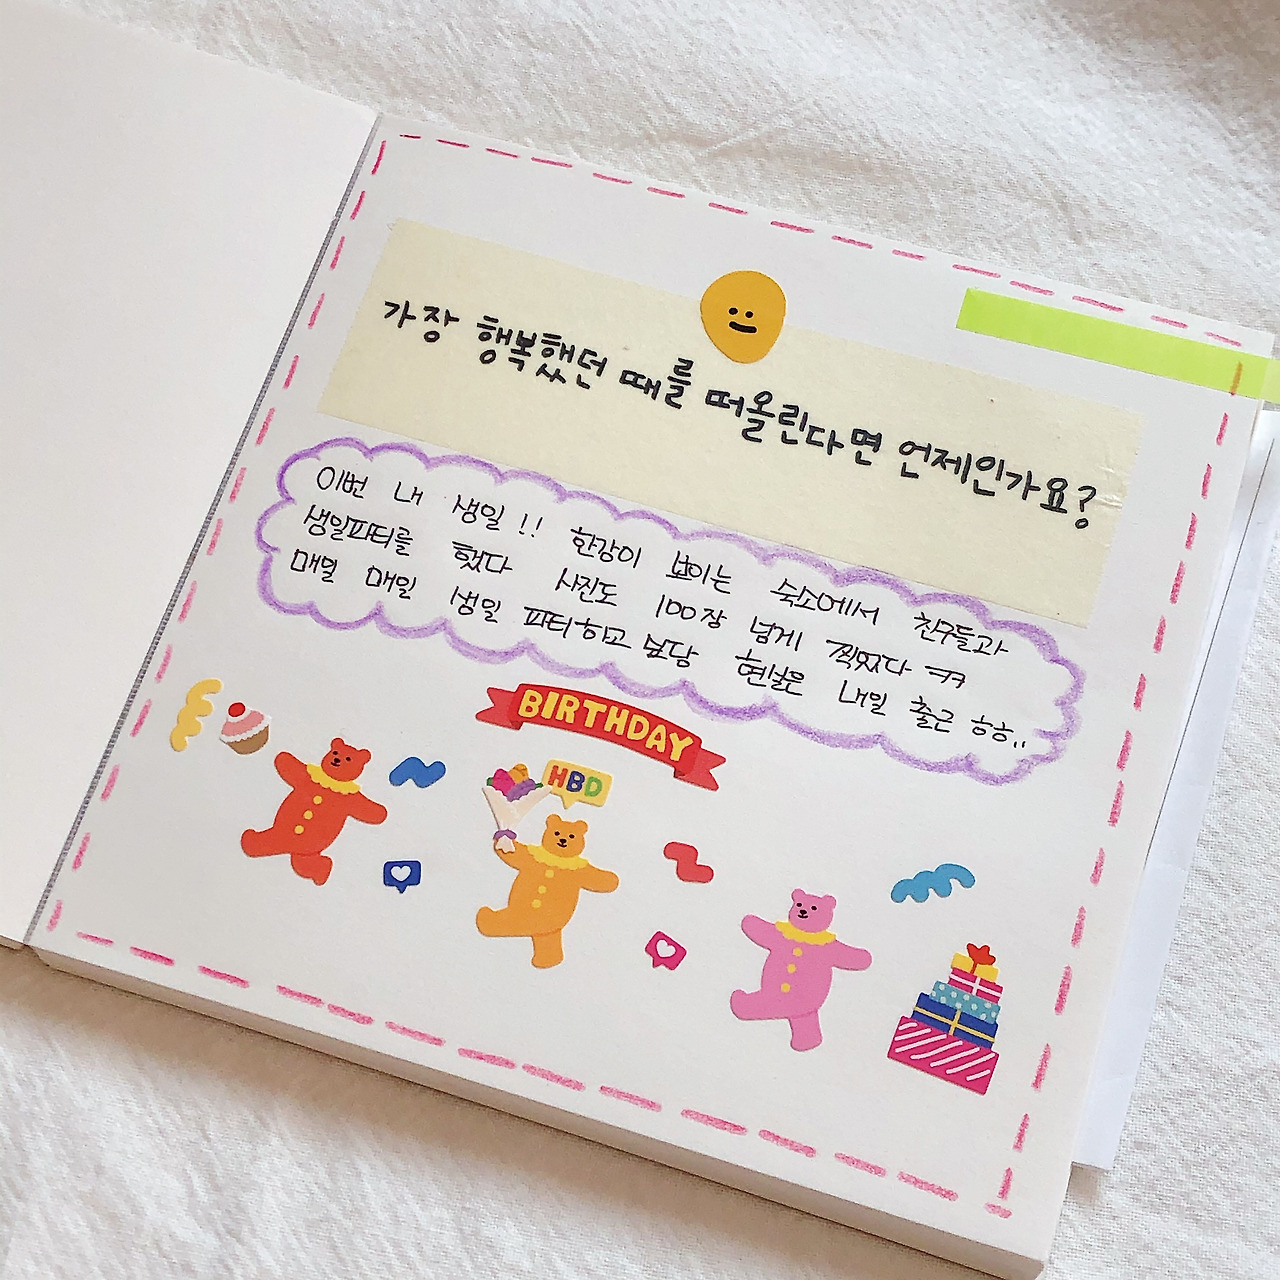 가장 행복했던 때를 떠올린다면 언제인가요?
이번 내 생일!! 한강이 보이는 숙소에서 친구들과
생일파티를 했다 사진도 100장 넘게 찍었다 ㅋㅋ
매일 매일 생일 파티하고 싶당 현실은 내일 출근 ㅎㅎ..
BIRTHDAY
HBD